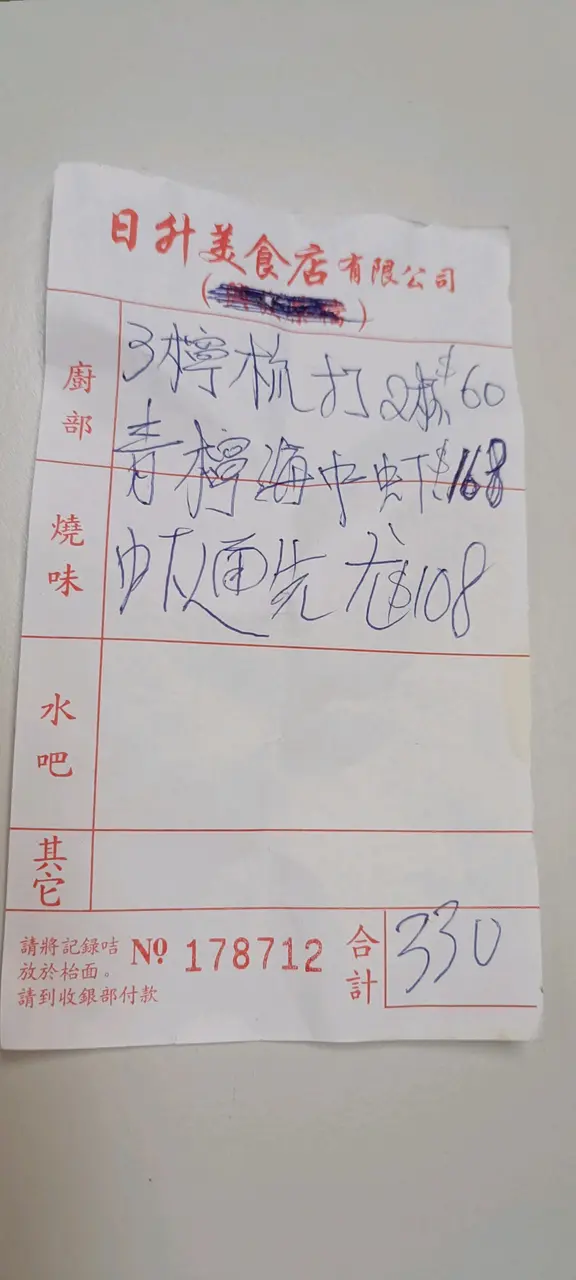 日升美食店有限公司
廚部
3檸梳打 2杯 $60
青檸海中虾 $168
燒味
$108
水吧
其它
請將記錄咭
放於枱面。
請到收銀部付款
Nº 178712
合計
330